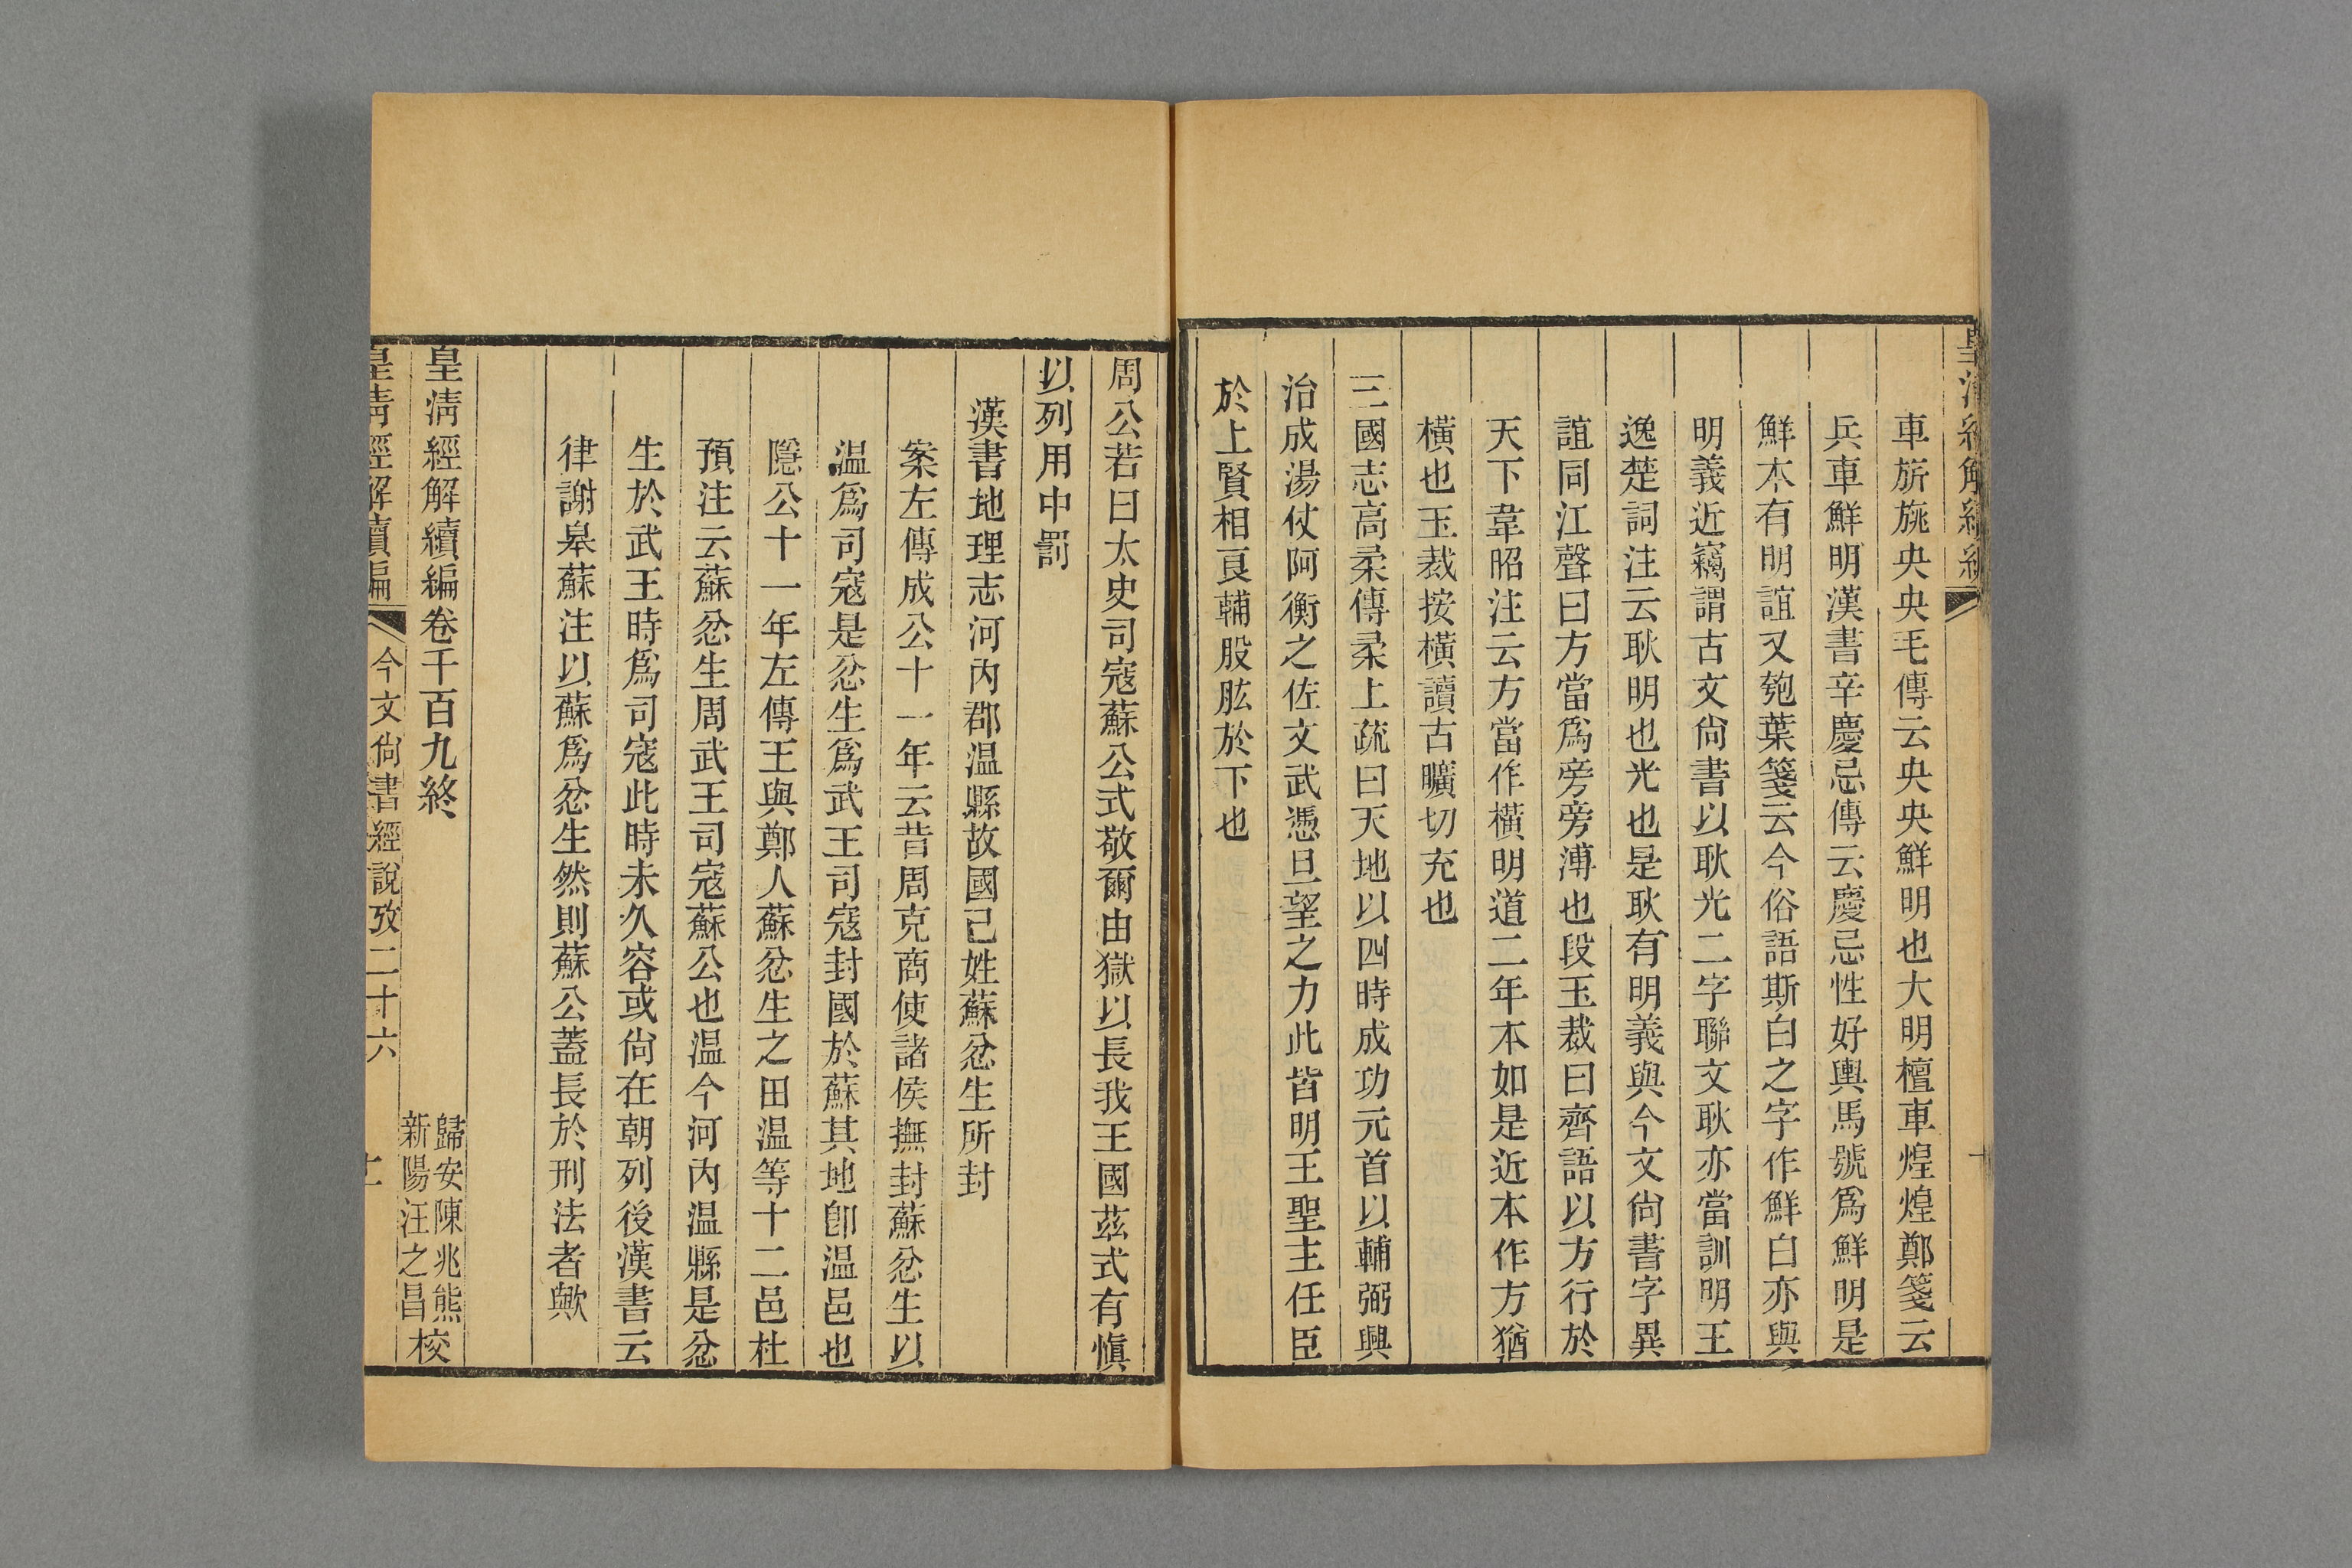 皇清經解續編
車旂旐央央毛傳云央央鮮明也大明檀車煌煌鄭箋云
兵車鮮明漢書辛慶忌傳云慶忌性好輿馬號爲鮮明是
鮮本有明誼又匏葉箋云今俗語斯白之字作鮮白亦與
明義近竊謂古文尙書以耿光二字聯文耿亦當訓明王
逸楚詞注云耿明也光也是耿有明義與今文尙書字異
誼同江聲曰方當爲旁旁溥也段玉裁曰齊語以方行於
天下韋昭注云方當作橫明道二年本如是近本作方猶
橫也玉裁按橫讀古曠切充也
三國志高柔傳柔上疏曰天地以四時成功元首以輔弼興
治成湯仗阿衡之佐文武憑旦望之力此皆明王聖主任臣
於上賢相良輔股肱於下也
周公若曰太史司寇蘇公式敬爾由獄以長我王國茲式有愼
以列用中罰
漢書地理志河內郡温縣故國己姓蘇忿生所封
案左傳成公十一年云昔周克商使諸侯撫封蘇忿生以
温爲司寇是忿生爲武王司寇封國於蘇其地卽温邑也
隱公十一年左傳王與鄭人蘇忿生之田温等十二邑杜
預注云蘇忿生周武王司寇蘇公也温今河內温縣是忿
生於武王時爲司寇此時未久容或尙在朝列後漢書云
律謝皋蘇注以蘇爲忿生然則蘇公蓋長於刑法者歟
皇清經解續編卷千百九終
歸安陳兆熊
新陽汪之昌
校
皇清經解續編
今文尙書經說攷二十六